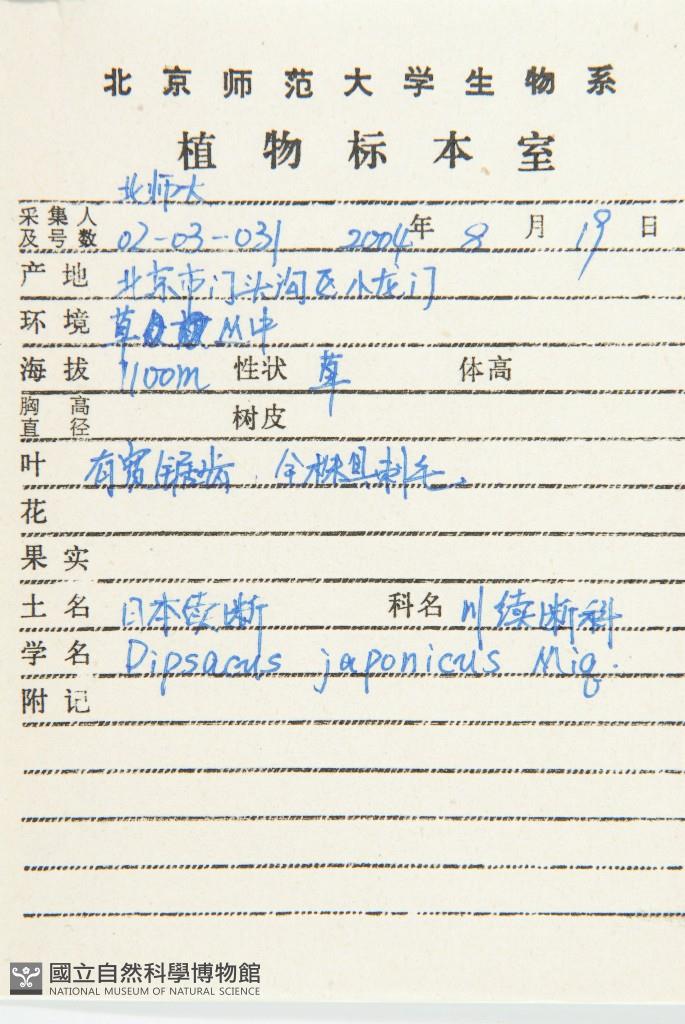 北京师范大学生物系
植物标本室
北师大
采集人及号数 02-03-031 2004年 8月 19日
产地 北京市门头沟区小龙门
环境 草 丛中
海拔 1100m 性状 草 体高
胸高直径 树皮
叶 有锯齿,全株具刺毛。
花
果实
土名 日本续断 科名 川续断科
学名 Dipsacus japonicus Miq.
附记
國立自然科學博物館
NATIONAL MUSEUM OF NATURAL SCIENCE